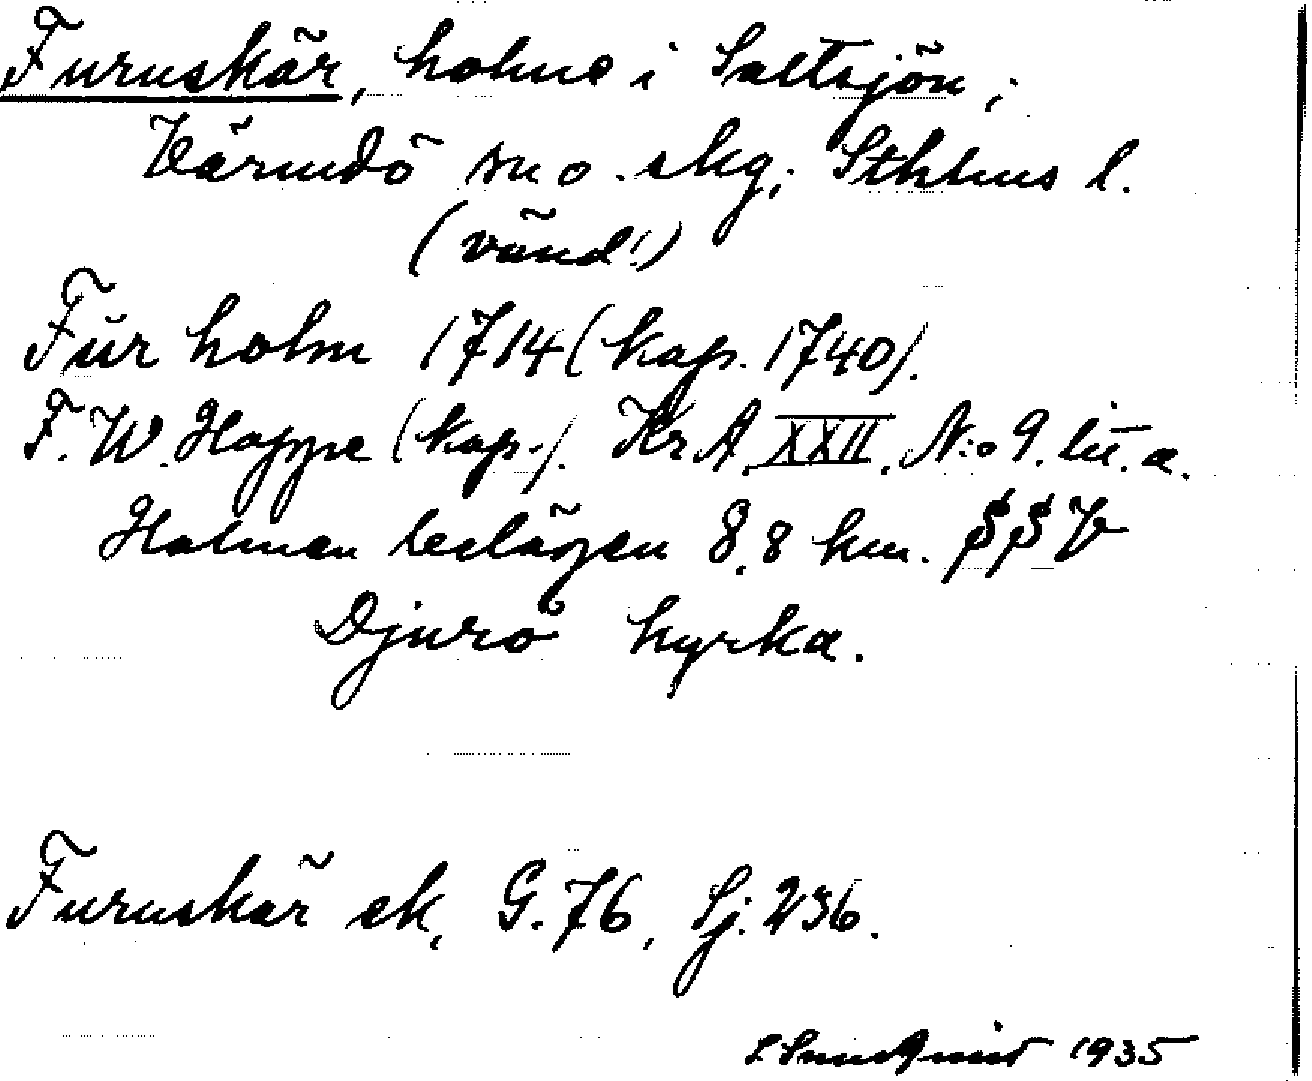 Furuskär, holme i Saltsjön;
Värmdö sn o. skg; Sthlms l.
(vänd!)
Furholm 1714 (kap. 1740).
F. W. Hoppe (kap.). KrA. XXII. N:o 9. lit. a.
Holmen belägen 8.8 km. SSV
Djurö kyrka.
Furuskär ek, G. 76, Sj. 236.
1935